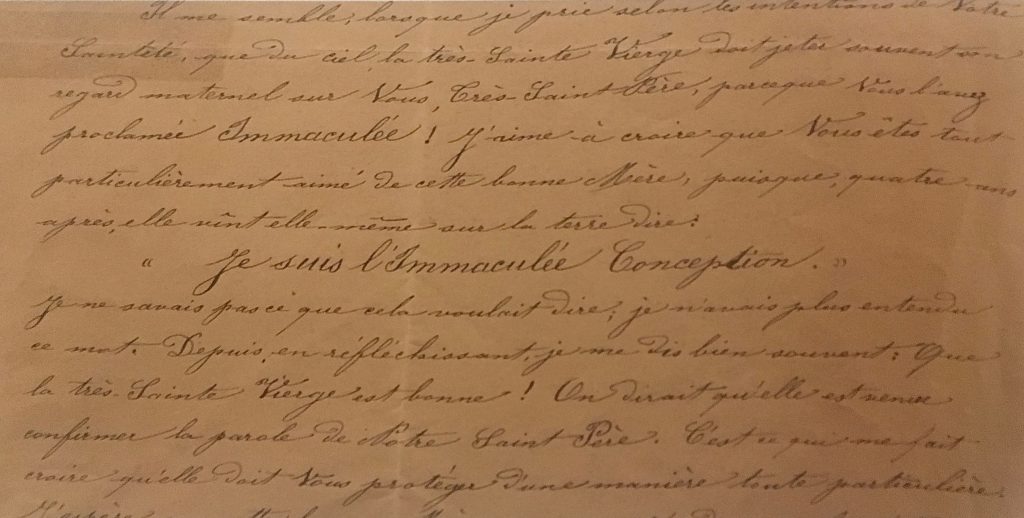 Il me semble, lorsque je prie selon les intentions de Votre
Sainteté, que du ciel, la très-Sainte Vierge doit jeter souvent son
regard maternel sur Vous, Très-Saint Père, parceque Vous l'avez
proclamée Immaculée ! J'aime à croire que Vous êtes tout
particulièrement aimé de cette bonne Mère, puisque, quatre ans
après, elle vint elle-même sur la terre dire:
" Je suis l'Immaculée Conception. "
Je ne savais pas ce que cela voulait dire; je n'avais plus entendu
ce mot. Depuis, en réfléchissant, je me dis bien souvent: Que
la très-Sainte Vierge est bonne ! On dirait qu'elle est venue
confirmer la parole de Notre Saint Père. C'est ce qui me fait
croire qu'elle doit Vous protéger d'une manière toute particulière.
J'espère